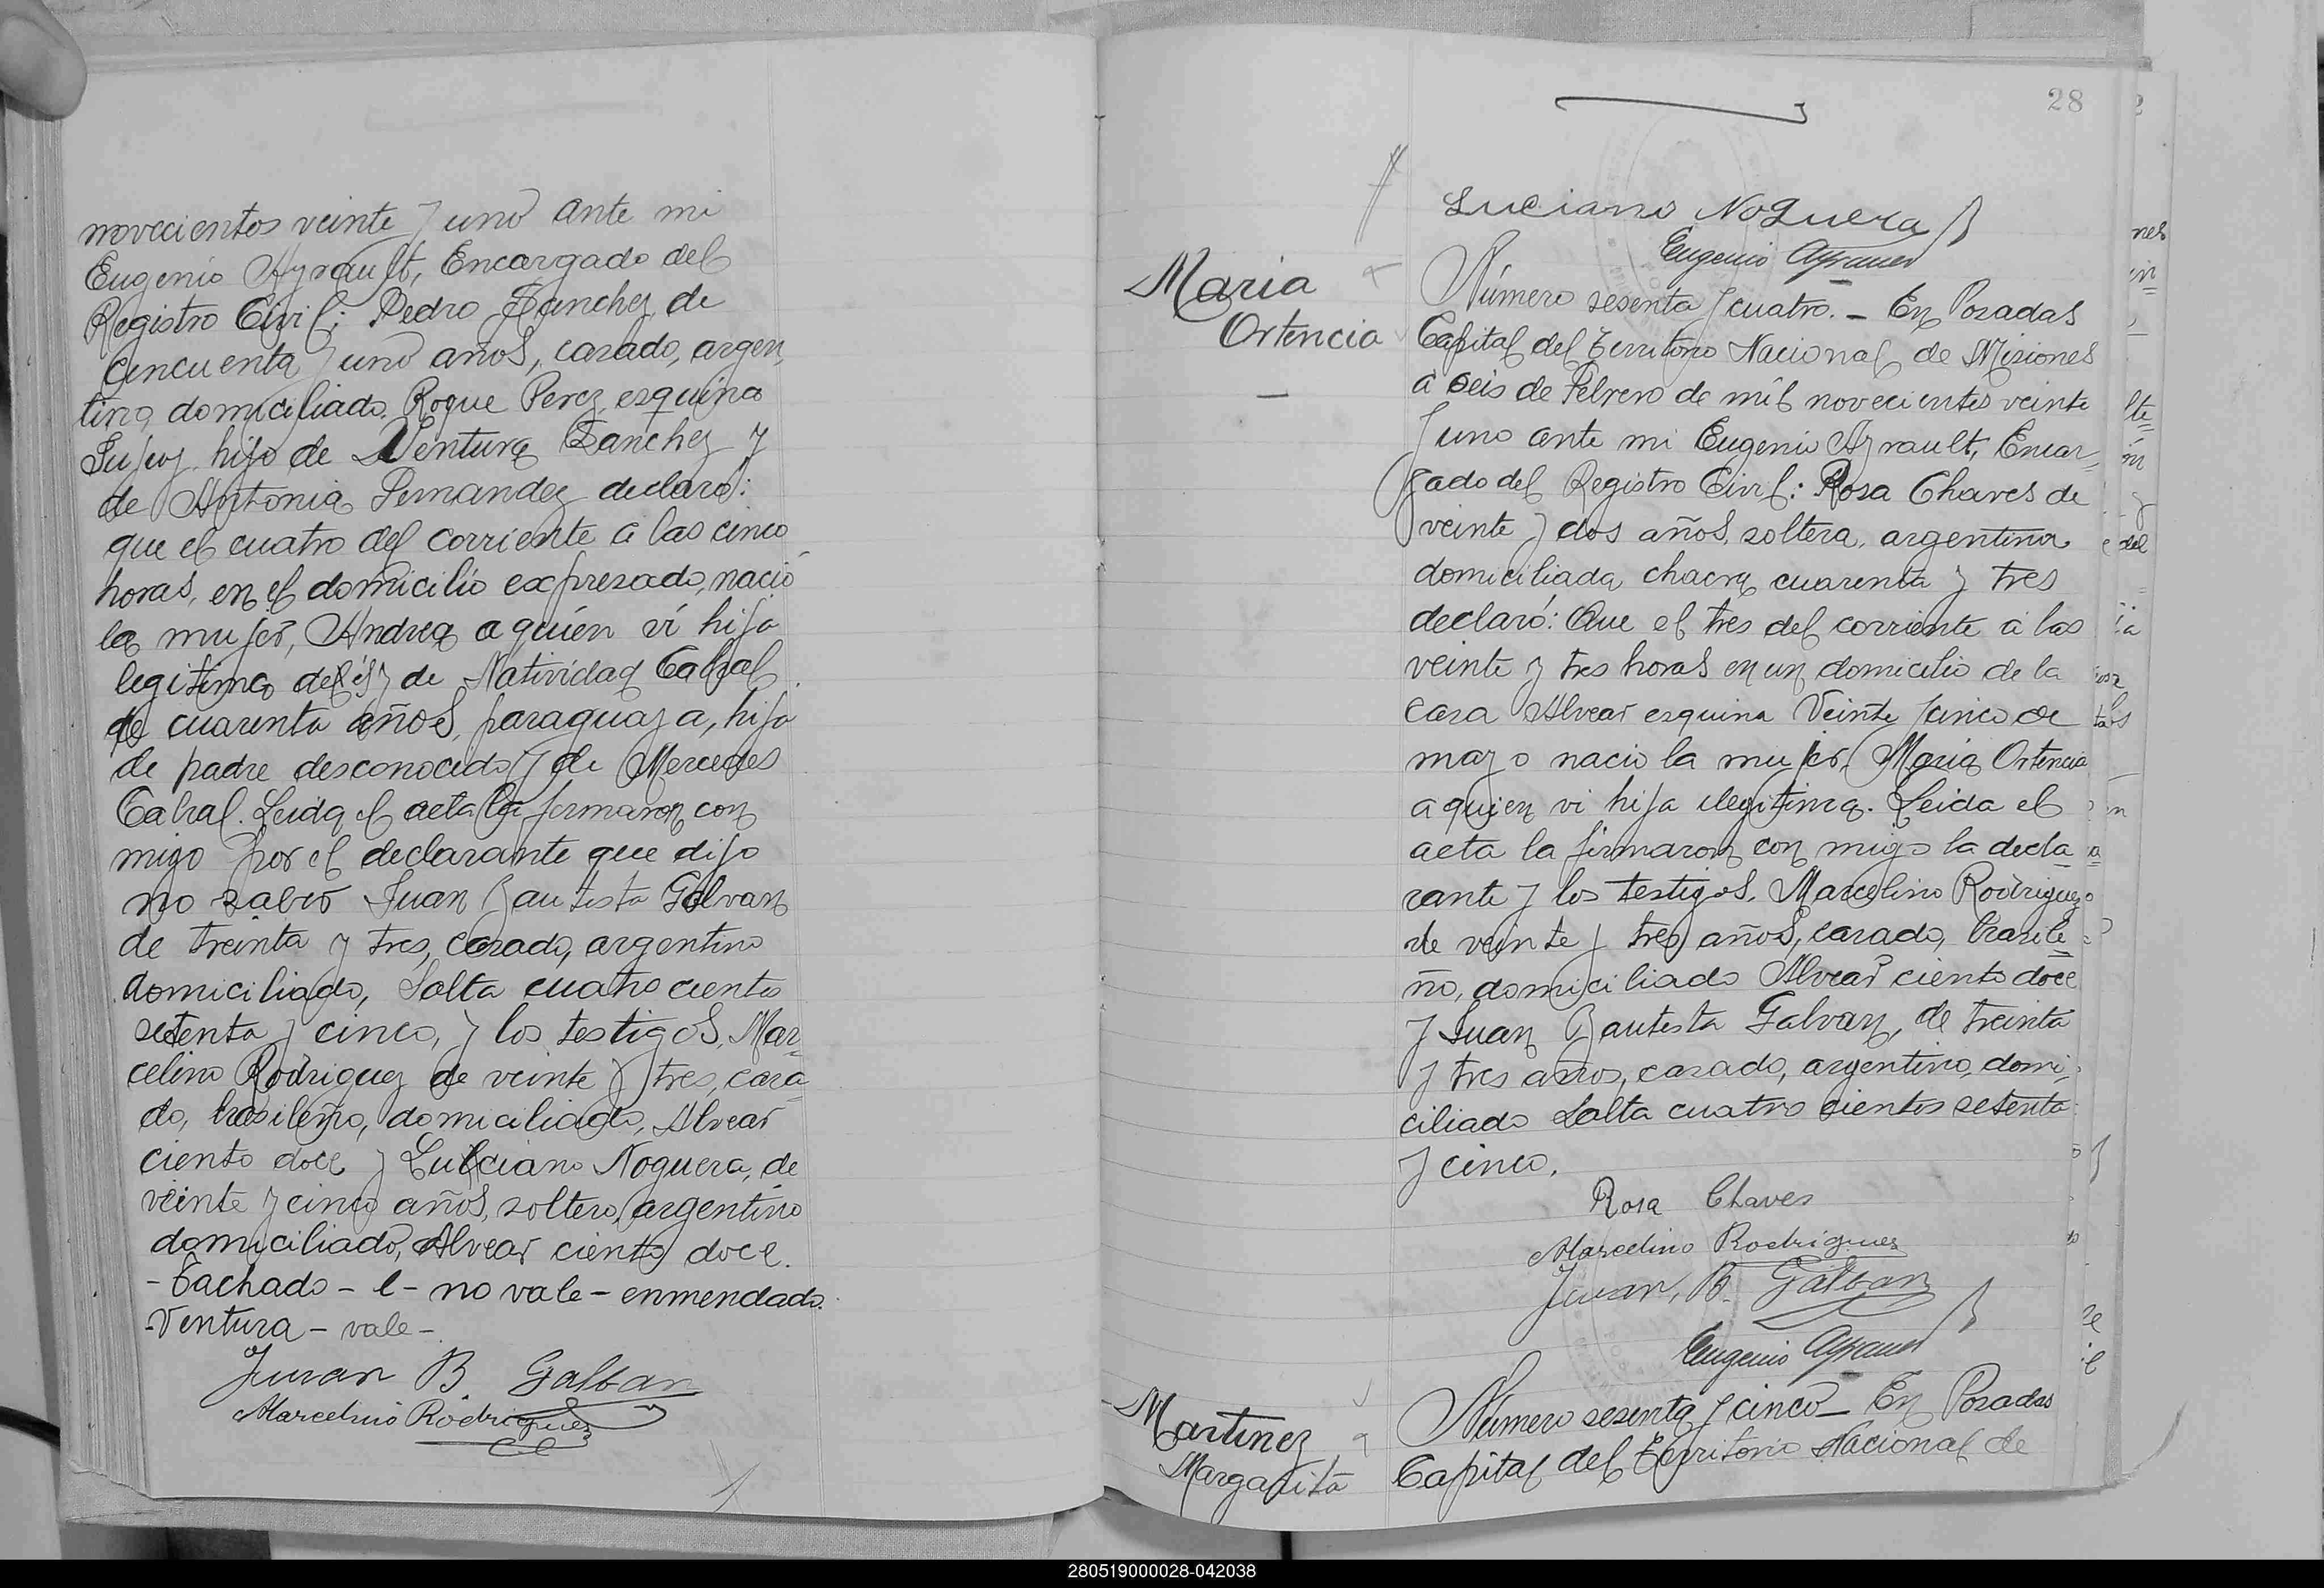 novecientos veinte y uno ante mi
Eugenio Ayrault, Encargado del
Registro Civil; Pedro Sanchez de
cincuenta y uno años, casado, argen
tino domiciliado. Roque Perez esquina
Jujuy hijo de Ventura Sanchez y
de Antonia Fernandez declaró:
que el cuatro del corriente a las cinco
horas, en el domicilio expresado, nació
la mujer, Andrea a quién vi hija
legitima de él y de Natividad Cabral
de cuarenta años, paraguaya, hija
de padre desconocido y de Mercedes
Cabral. Leida el acta la firmaron con
migo por el declarante que dijo
no saber Juan Bautista Galvan
de treinta y tres, casado, argentino
domiciliado, Salta cuatro cientos
setenta y cinco, y los testigos, Mar-
celino Rodriguez de veinte y tres, casa-
do, brasileño, domiciliado, Alvear
ciento doce y Luciano Noguera, de
veinte y cinco años, soltero, argentino
domiciliado, Alvear ciento doce.
-Tachado - l - no vale - enmendado.
-Ventura - vale -
Juan B. Galban
Marcelino Rodriguez
28
Luciano Noguera
Eugenio Ayrault
Maria
Ortencia
Número sesenta y cuatro. - En Posadas
Capital del Territorio Nacional de Misiones
a seis de Febrero de mil novecientos veinte
y uno ante mi Eugenio Ayrault, Encar-
gado del Registro Civil: Rosa Chaves de
veinte y dos años, soltera, argentina
domiciliada chacra cuarenta y tres
declaró: Que el tres del corriente a las
veinte y tres horas en un domicilio de la
casa Alvear esquina Veinte y cinco de
mayo nacio la mujer, Maria Ortencia
a quien vi hija ilegitima. Leida el
acta la firmaron con migo la decla
rante y los testigos. Marcelino Rodriguez
de veinte y tres años, casado, brasile
ño, domiciliado Alvear ciento doce
y Juan Bautista Galvan, de treinta
y tres años, casado, argentino, domi-
ciliado Salta cuatro cientos setenta
y cinco.
Rosa Chaves
Marcelino Rodriguez
Juan, B. Galban
Eugenio Ayrault
Martinez
Margarita
Número sesenta y cinco - En Posadas
Capital del Territorio Nacional de
280519000028-042038